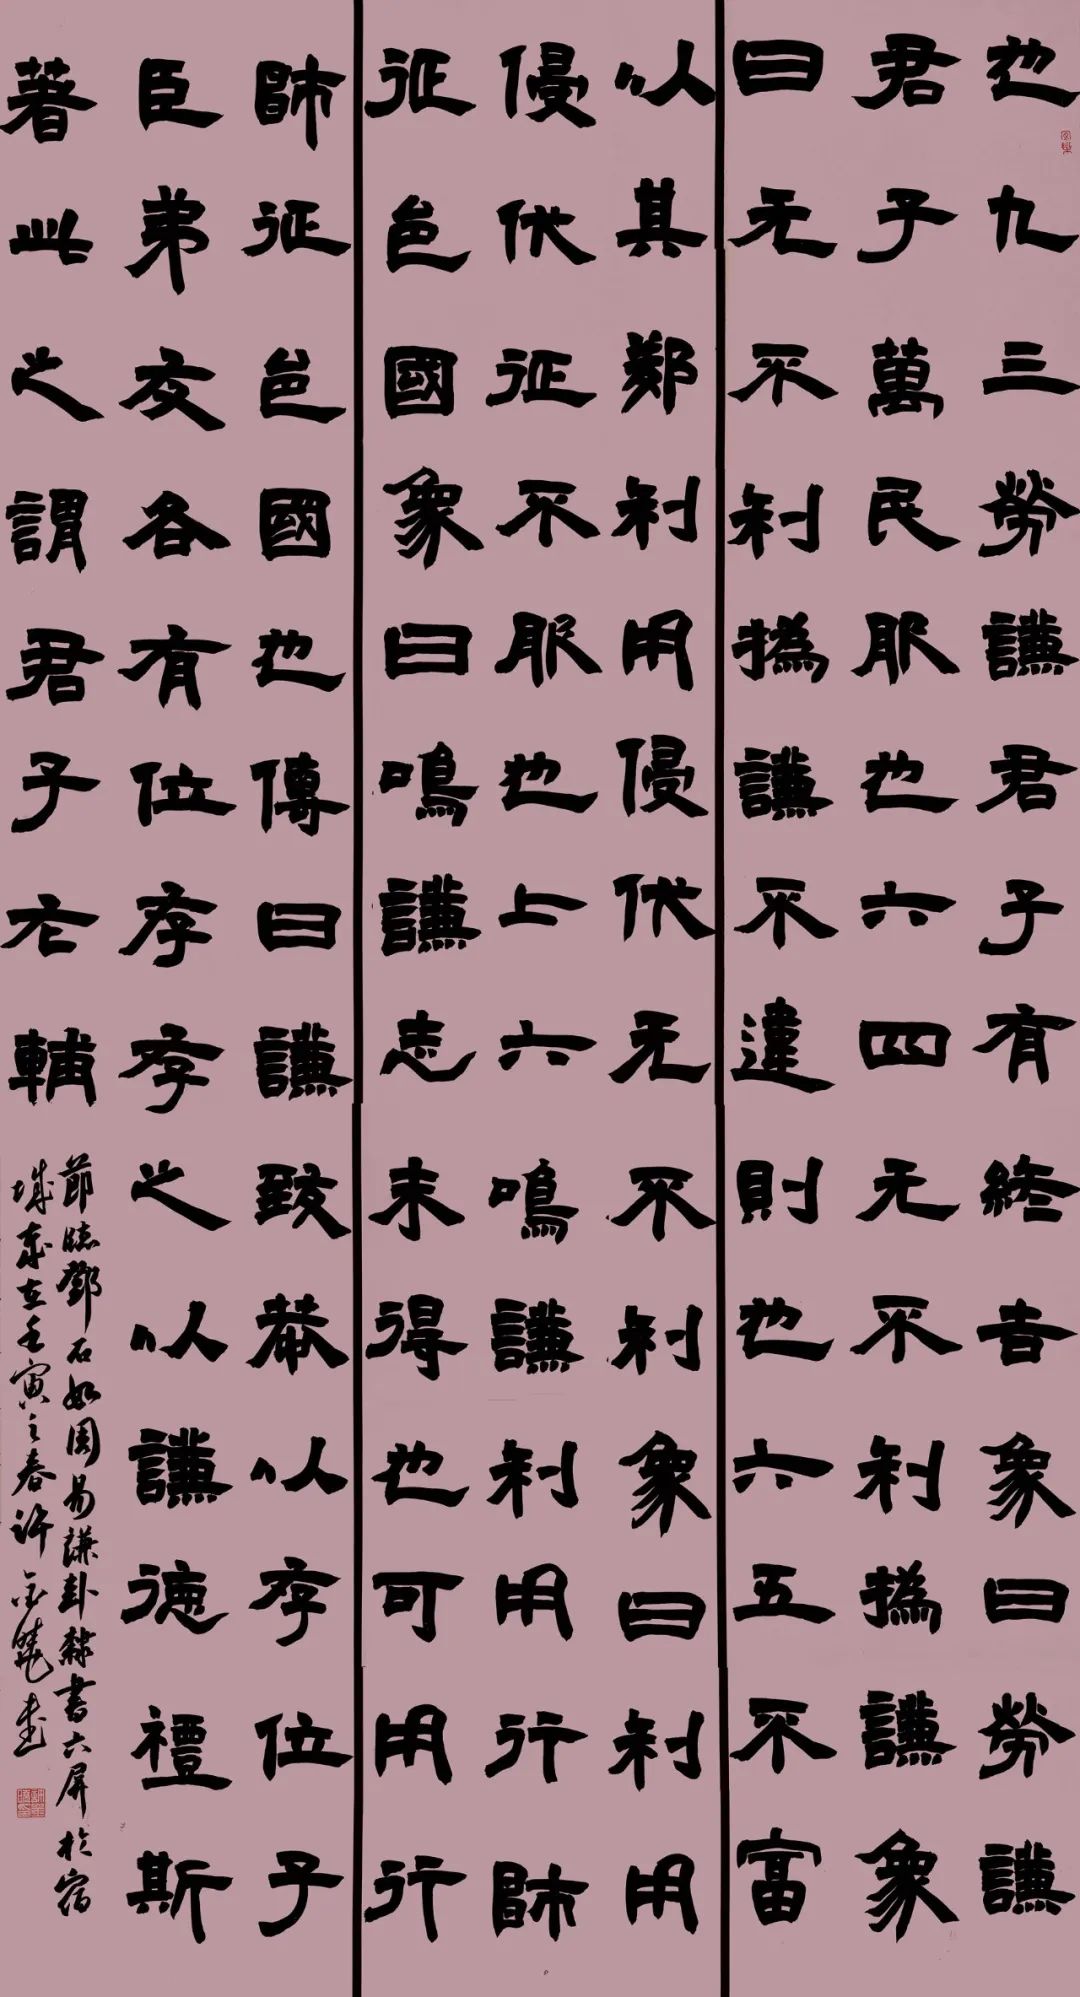 也九三勞謙君子有終吉象曰勞謙
君子萬民服也六四无不利撝謙象
曰无不利撝謙不違則也六五不富
以其鄰利用侵伐无不利象曰利用
侵伐征不服也上六鳴謙利用行師
征邑國象曰鳴謙志未得也可用行
師征邑國也傳曰謙致恭以存位子
臣弟友各有位存存之以謙德禮斯
著此之謂君子左輔
節臨鄧石如周易謙卦隸書六屏於宿
城壬寅之春許曉